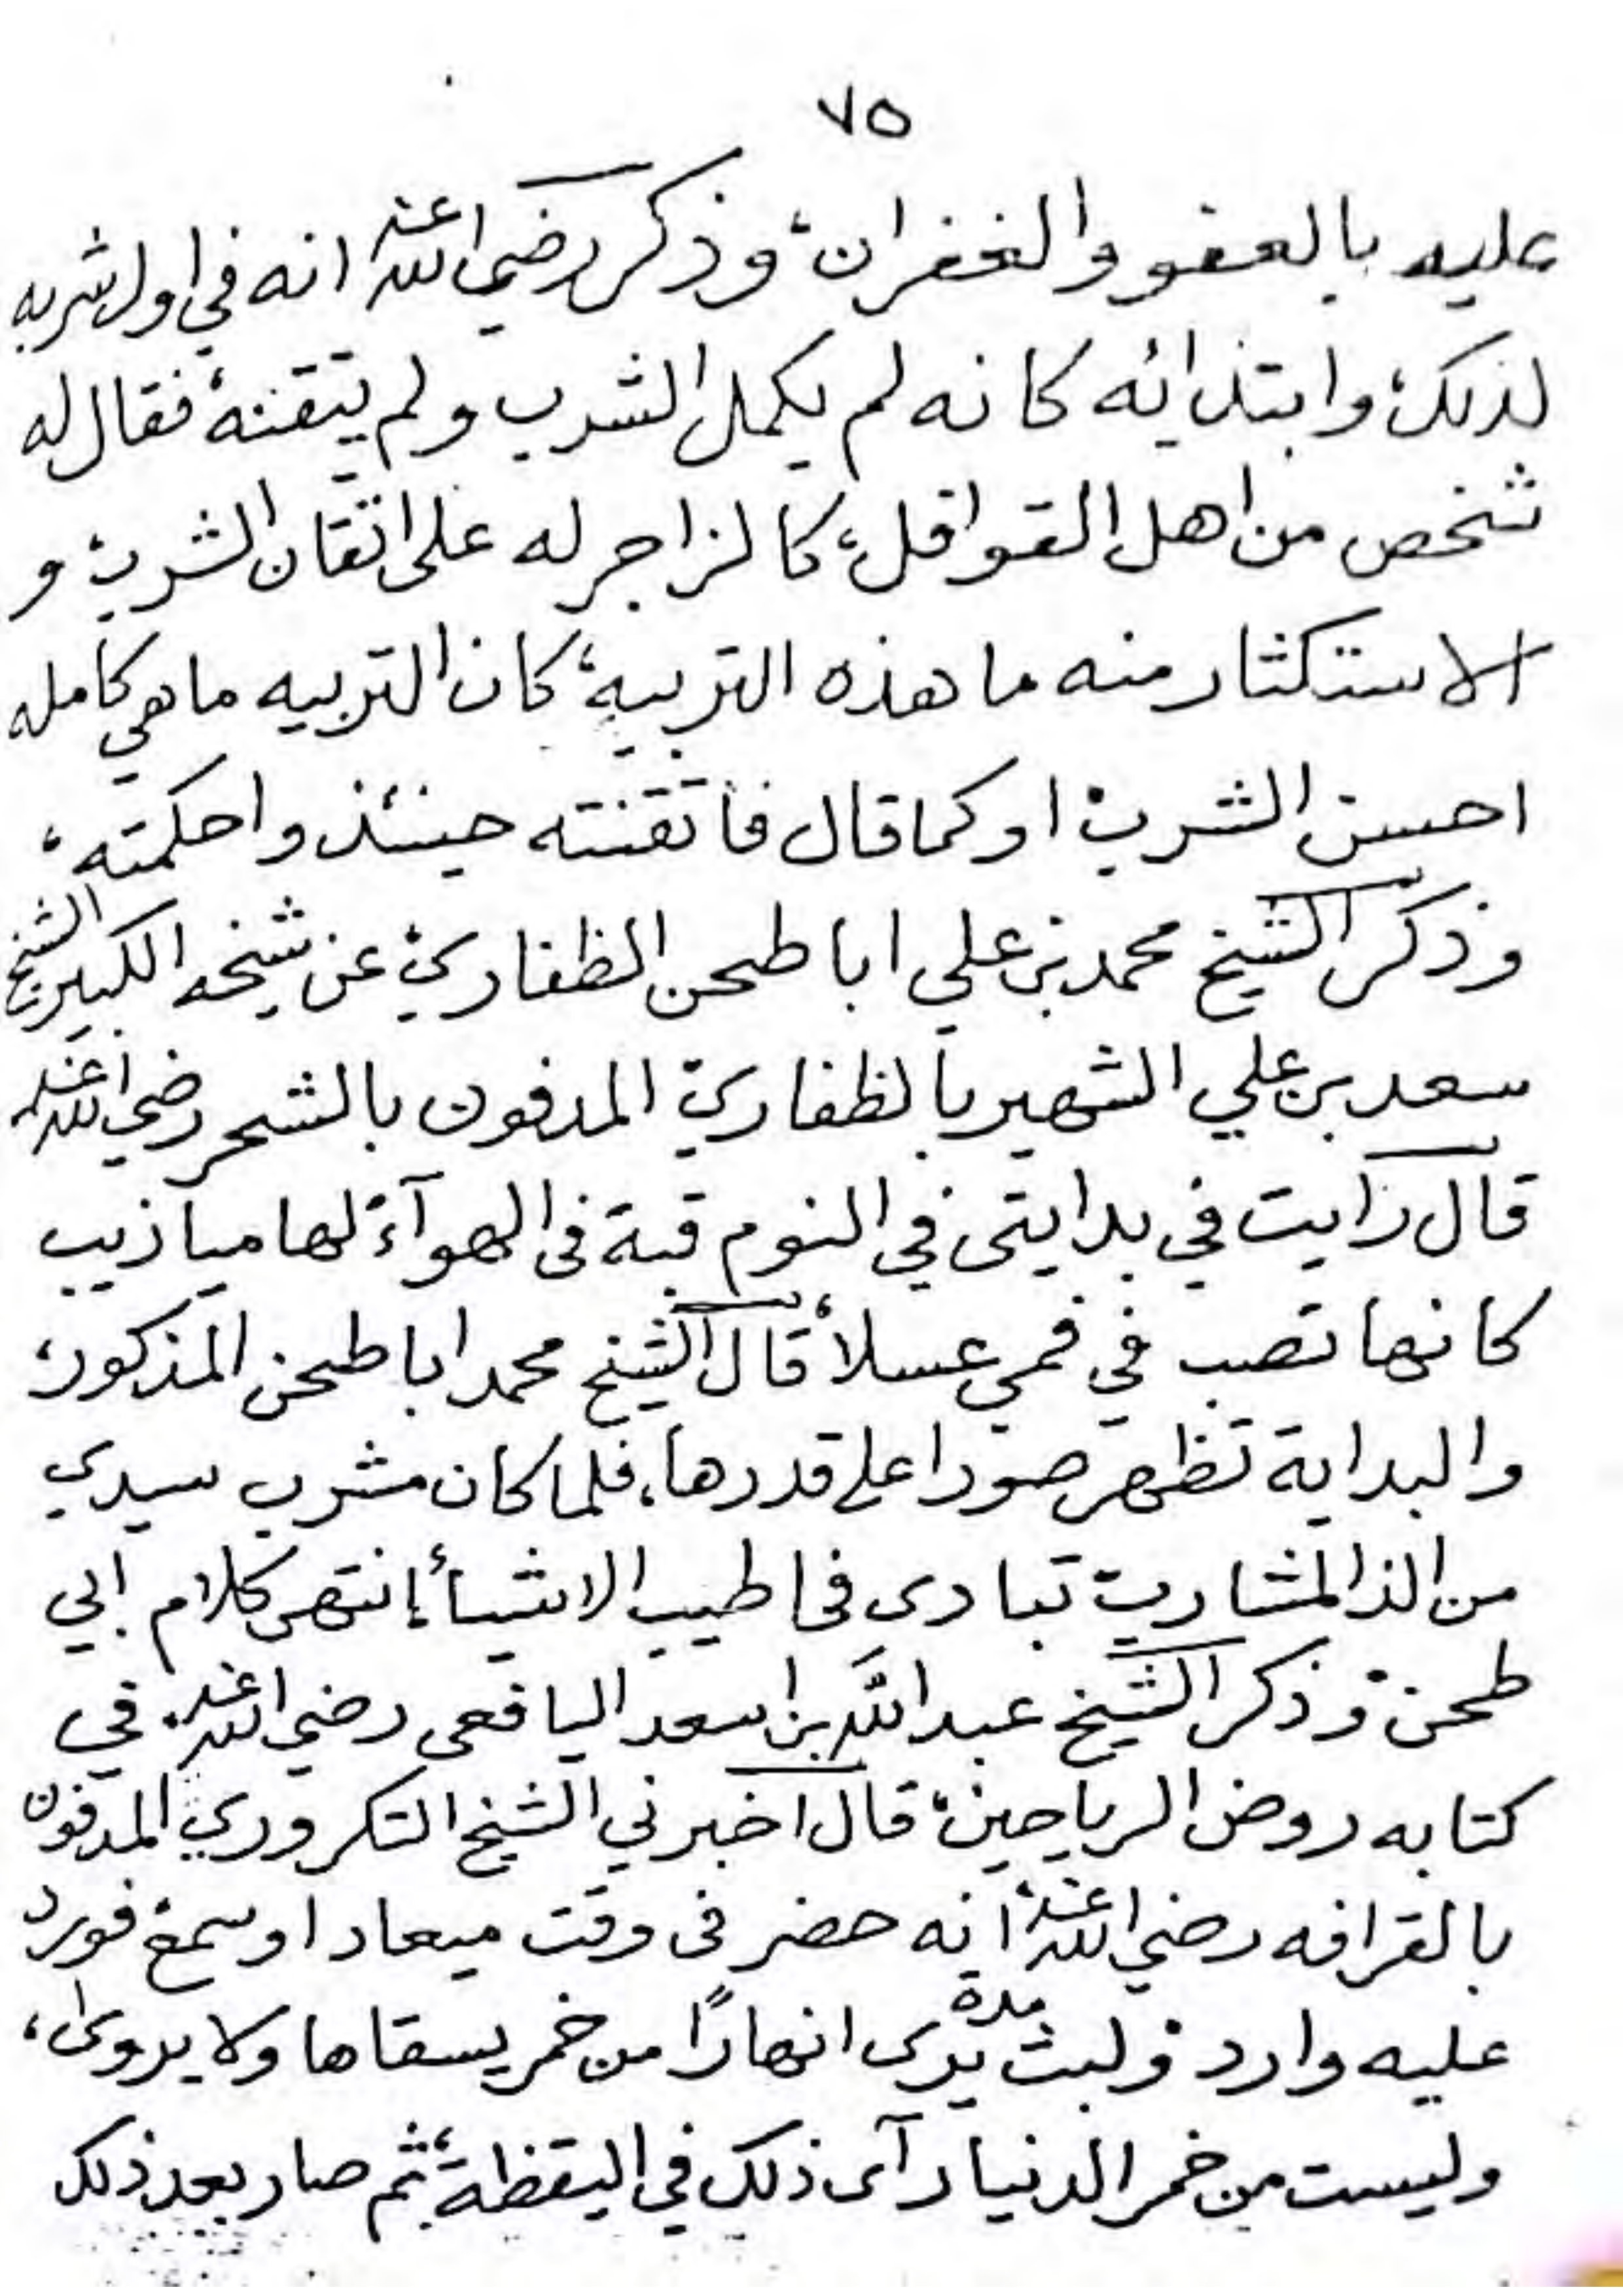 ٧٥
عليه بالعفو والغفران، وذكر رضي الله عنه انه في اول شربه
لذلك، وابتدائه كانه لم يكمل الشرب ولم يتقنه، فقال له
شخص من اهل القوافل، كالزاجر له على اتقان الشرب، و
الاستكثار منه ما هذه التربية، كان التربيه ما هي كامله
احسن الشرب، او كما قال فاتقنته حينئذ واحكمته،
وذكر الشيخ محمد بن علي ابا طحن الظفاري، عن شيخه الكبير الشيخ
سعد بن علي الشهير بالظفاري، المدفون بالشحر رضي الله عنه
قال رايت في بدايتى في النوم قبة فى الهوآء، لها ميازيب
كانها تصب في فمي عسلاً، قال الشيخ محمد ابا طحن المذكور،
والبداية تظهر صورا على قدرها، فلما كان مشرب سيدي
من الذ المشارب، تبادى فى اطيب الاشيأ، انتهى كلام ابي
طحن، وذكر الشيخ عبد الله بن اسعد اليافعى رضي الله عنه، في
كتابه روض الرياحين، قال اخبرني الشيخ التكروري المدفون
بالقرافه رضي الله عنه، انه حضر فى وقت ميعاد او سمع، فورد
عليه وارد، ولبث مدة يرى انهارًا من خمر يسقاها ولا يروى،
وليست من خمر الدنيا رآى ذلك في اليقظة، ثم صار بعد ذلك